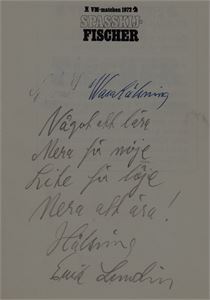 VM-matchen 1972
SPASSKIJ-
FISCHER
Något att lära
Mera för nöje
Lite för löje
Mera att ära!
Hälsning
Erik Lundin